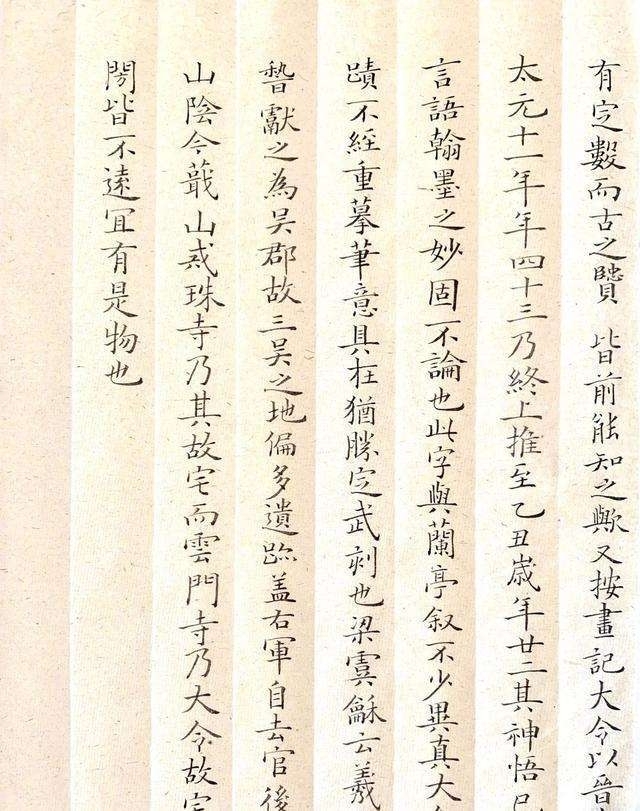 有定數而古之賢 皆前能知之歟又按畫記大令以晉
太元十一年年四十三乃終上推至乙丑歲年廿二其神悟
言語翰墨之妙固不論也此字與蘭亭叙不少異真大
蹟不經重摹筆意具在猶勝定武刻也梁虞龢云羲
獻之為吳郡故三吳之地偏多遺跡蓋右軍自去官後
山陰今蕺山戒珠寺乃其故宅而雲門寺乃大令故宅
皆不遠宜有是物也